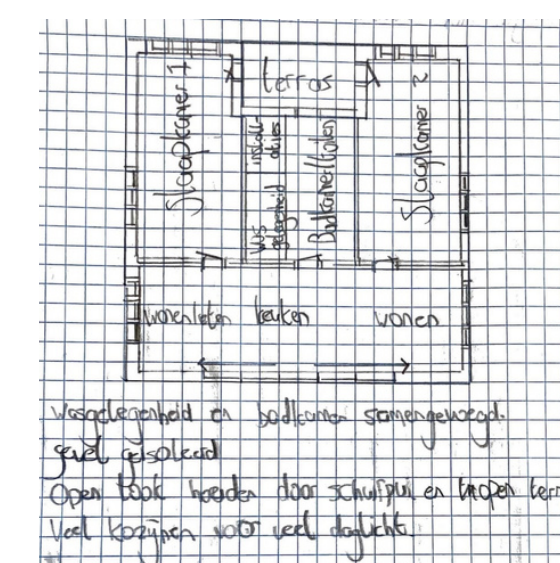 terras
Slaapkamer 1
install-
aties
Was
gelegenheid
Badkamer/toilet
Slaapkamer 2
wonen/eten keuken wonen
wasgelegenheid en badkamer samengevoegd.
gevel geïsoleerd
Open look houden door schuifpui en inpan terr
Veel kozijnen voor veel daglicht.